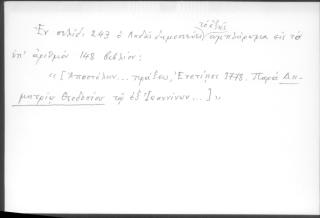 τὸ ἑξῆς
Ἐν σελίδι 243 ὁ Λαδᾶς δημοσιεύει συμπλήρωμα εἰς τὸ
ὑπ' ἀριθμὸν 148 βιβλίον:
« [Ἀποστόλων... πράξεις, Ἐνετίῃσι 1778. Παρὰ Δη-
μητρίῳ Θεοδοσίου τῷ ἐξ Ἰωαννίνων...] »